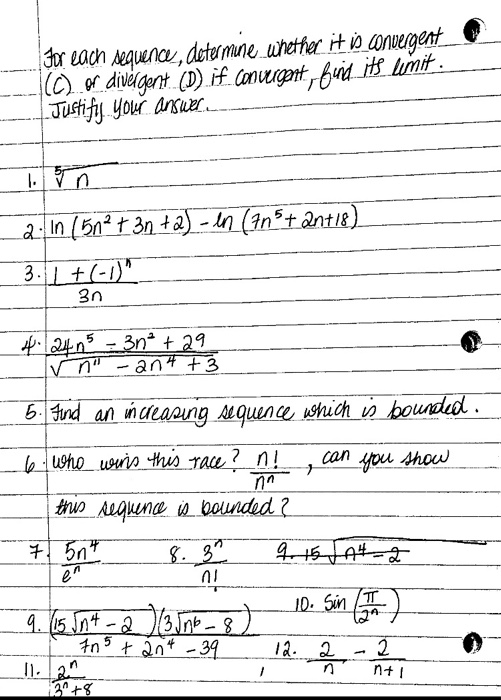 For each sequence, determine whether it is convergent
(C) or divergent (D) if convergent, find its limit.
Justify your answer.
1. ⁵√n
2. ln (5n² + 3n + 2) - ln (7n⁵ + 2n + 18)
3. (1 + (-1)ⁿ) / 3n
4. (24n⁵ - 3n² + 29) / √(n¹¹ - 2n⁴ + 3)
5. Find an increasing sequence which is bounded.
6. who wins this race? n!/nⁿ, can you show
this sequence is bounded?
7. 5n⁴/eⁿ 8. 3ⁿ/n! 9. 15√(n⁴ - 2)
10. Sin (π/2ⁿ)
9. (15√n⁴ - 2)(3√n⁶ - 8) / (7n⁵ + 2n⁴ - 39)
12. 2/n - 2/(n+1)
11. 2ⁿ/(3ⁿ + 8)